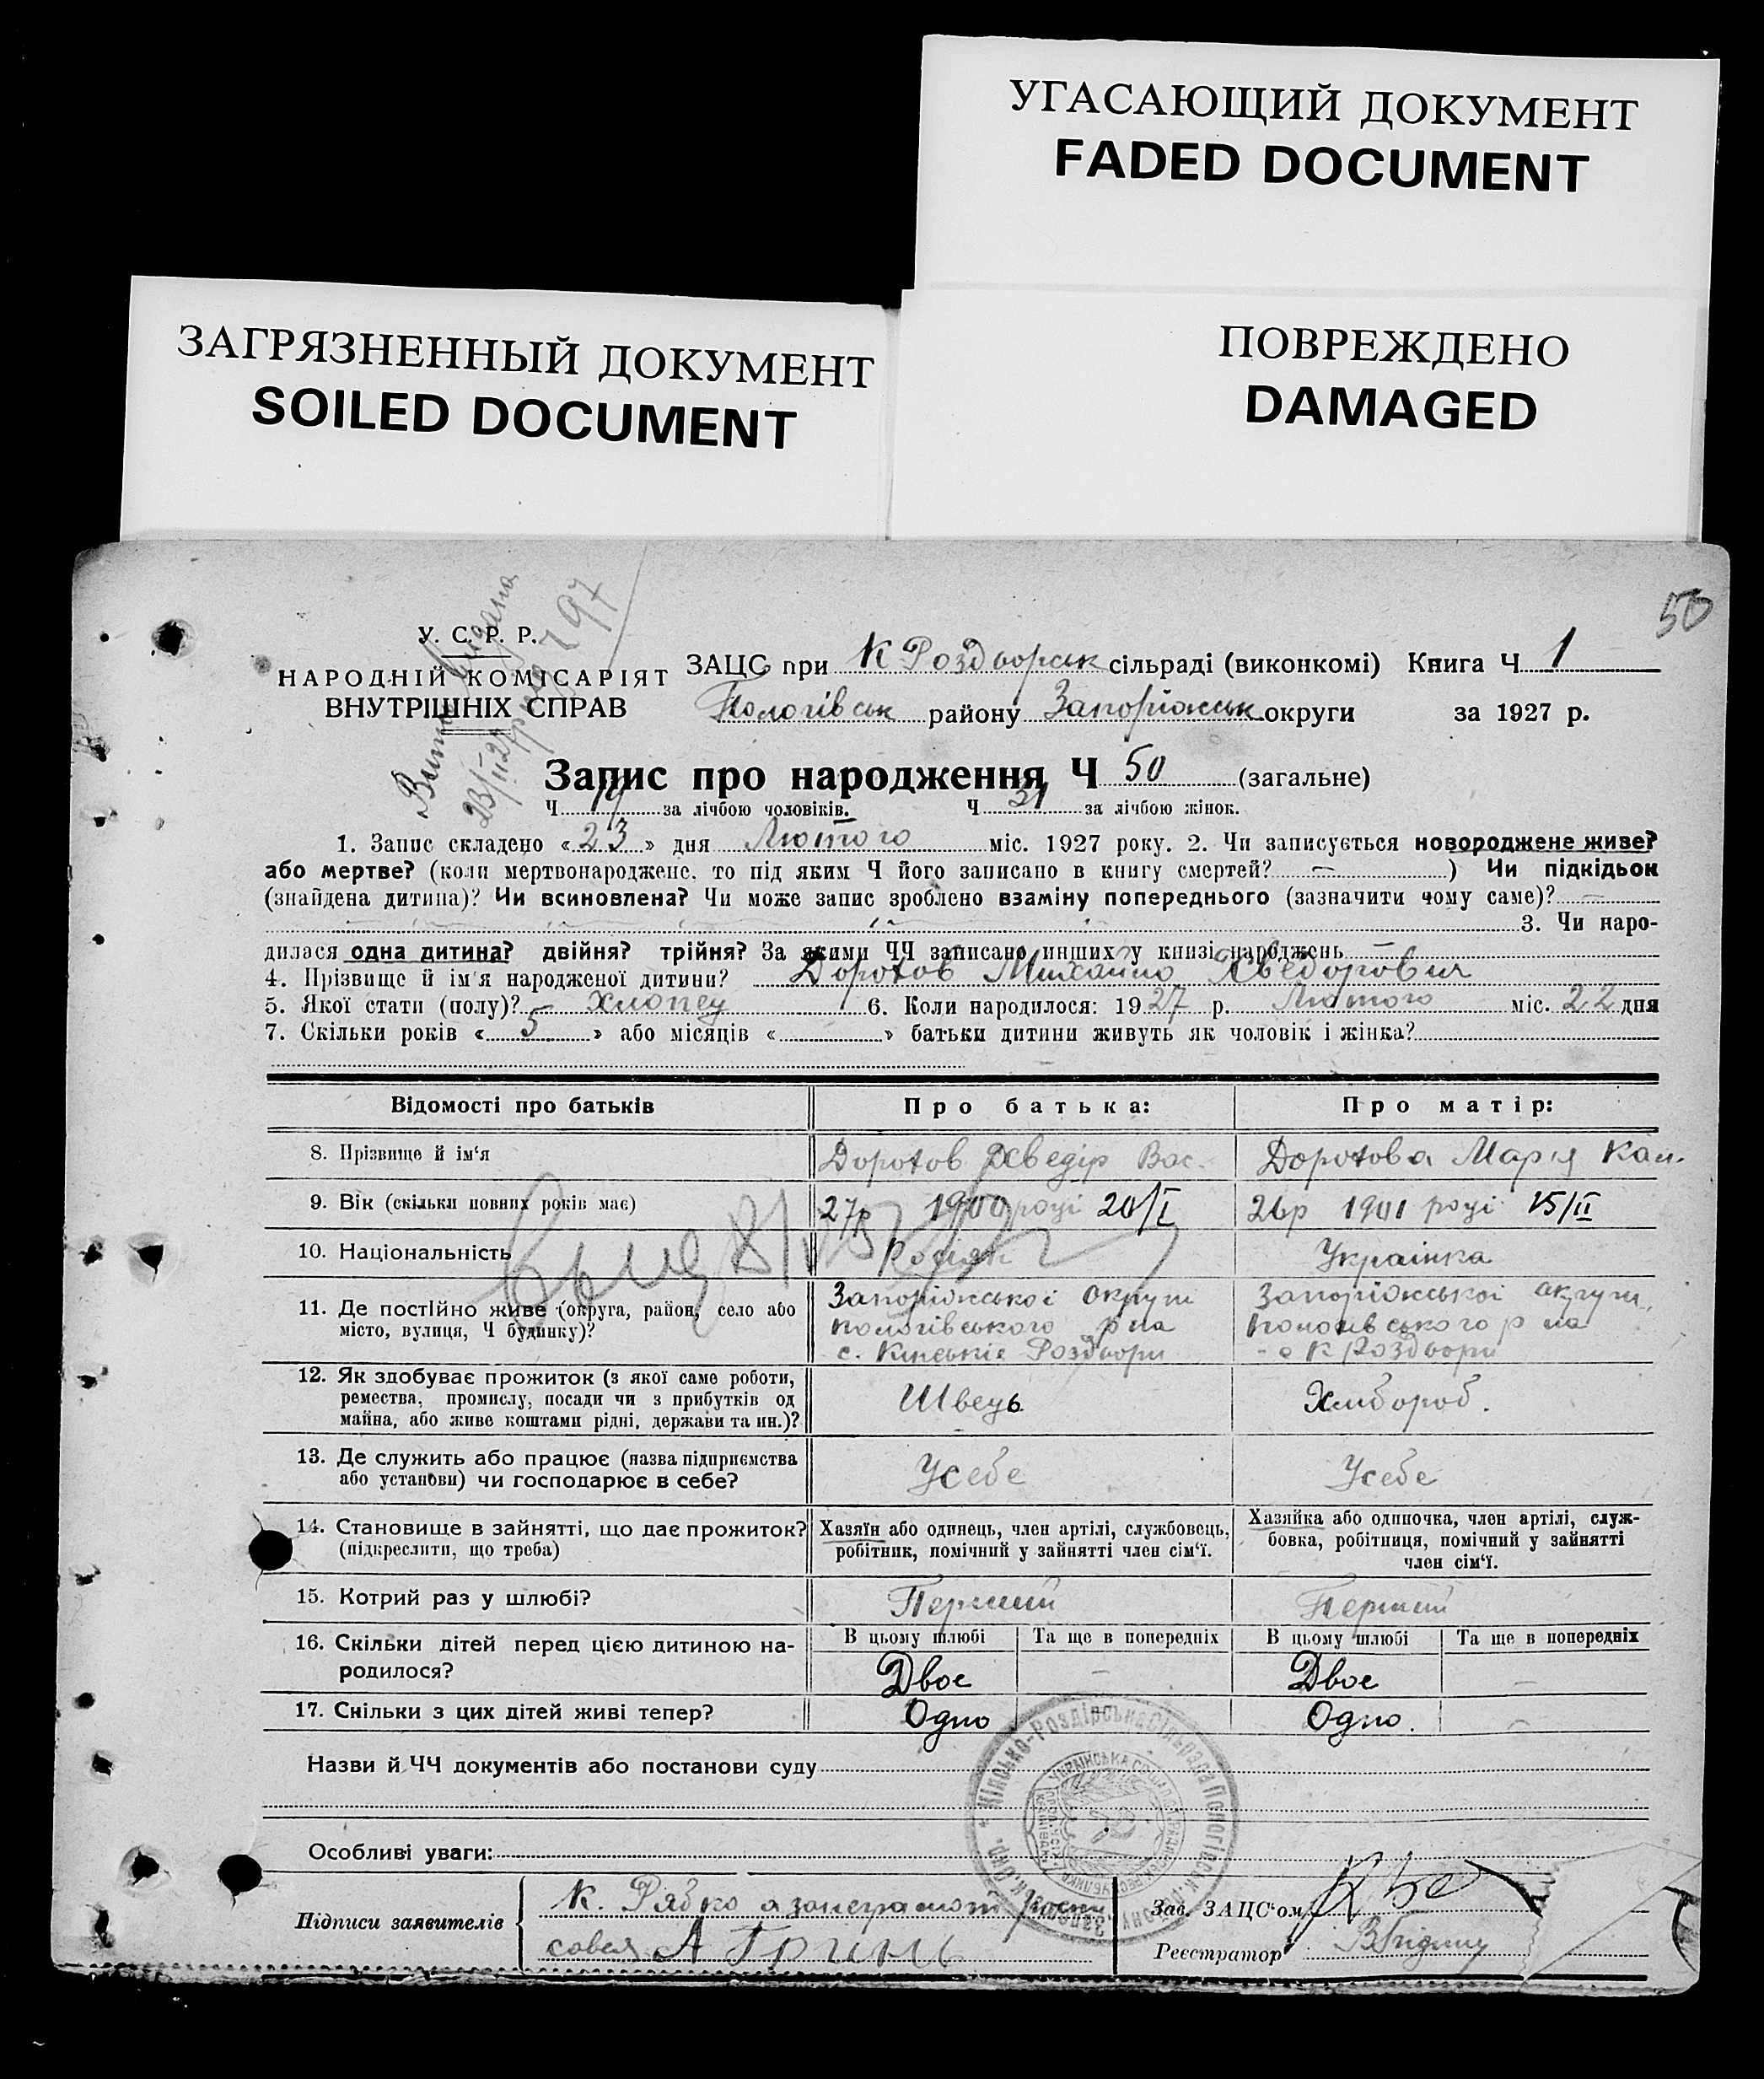 УГАСАЮЩИЙ ДОКУМЕНТ
FADED DOCUMENT
ЗАГРЯЗНЕННЫЙ ДОКУМЕНТ
SOILED DOCUMENT
ПОВРЕЖДЕНО
DAMAGED
50
У. С. Р. Р.
НАРОДНІЙ КОМІСАРІЯТ
ВНУТРІШНІХ СПРАВ
ЗАЦС при К Роздворськ сільраді (виконкомі) Книга Ч 1
Пологівськ району Запоріжськ округи за 1927 р.
Запис про народження Ч 50 (загальне)
Ч 19 за лічбою чоловіків. Ч 31 за лічбою жінок.
1. Запис складено «23» дня Лютого міс. 1927 року. 2. Чи записується новороджене живе?
або мертве? (коли мертвонароджене, то під яким Ч його записано в книгу смертей? — ) Чи підкідьок
(знайдена дитина)? Чи всиновлена? Чи може запис зроблено взаміну попереднього (зазначити чому саме)? —
3. Чи наро-
дилася одна дитина? двійня? трійня? За якими ЧЧ записано инших у книзі народжень —
4. Прізвище й ім'я народженої дитини? Дорохов Михайло Хведорович
5. Якої стати (полу)? Хлопец 6. Коли народилося: 1927 р. Лютого міс. 22 дня
7. Скільки років «5» або місяців « » батьки дитини живуть як чоловік і жінка?
Відомості про батьків Про батька: Про матір:
8. Прізвище й ім'я Дорохов Хведір Вас. Дорохова Марія Кал.
9. Вік (скільки повних років має) 27р 1900 році 20/I 26р 1901 році 15/II
10. Національність Росіян Українка
11. Де постійно живе (округа, район, село або
місто, вулиця, Ч будинку)?
Запоріжської округи
Пологівського р на
с. Кінські Роздори
Запоріжської округи,
Пологівського р на
с К Роздори
12. Як здобуває прожиток (з якої саме роботи,
ремества, промислу, посади чи з прибутків од
майна, або живе коштами рідні, держави та ин.)?
Швець Хлібороб.
13. Де служить або працює (назва підприємства
або установи) чи господарює в себе?
Усебе Усебе
14. Становище в зайнятті, що дає прожиток?
(підкреслити, що треба)
Хазяїн або одинець, член артілі, службовець,
робітник, помічний у зайнятті член сім'ї.
Хазяйка або одиночка, член артілі, служ-
бовка, робітниця, помічний у зайнятті
член сім'ї.
15. Котрий раз у шлюбі? Перший Перший
16. Скільки дітей перед цією дитиною на-
родилося?
В цьому шлюбі Та ще в попередніх В цьому шлюбі Та ще в попередніх
Двоє — Двоє —
17. Скільки з цих дітей живі тепер? Одно — Одно. —
Назви й ЧЧ документів або постанови суду
Особливі уваги:
Підписи заявителів
К. Рябко а за неграмот
А Гринь
Зав. ЗАЦС'ом
Реєстратор